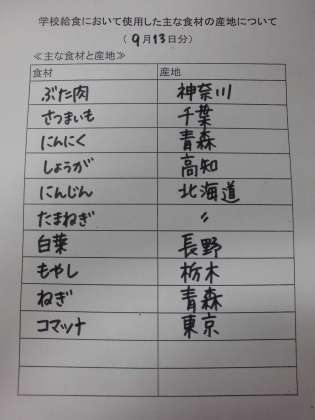 学校給食において使用した主な食材の産地について
(9月13日分)
≪主な食材と産地≫
食材 産地
ぶた肉 神奈川
さつまいも 千葉
にんにく 青森
しょうが 高知
にんじん 北海道
たまねぎ 〃
白菜 長野
もやし 栃木
ねぎ 青森
コマツナ 東京